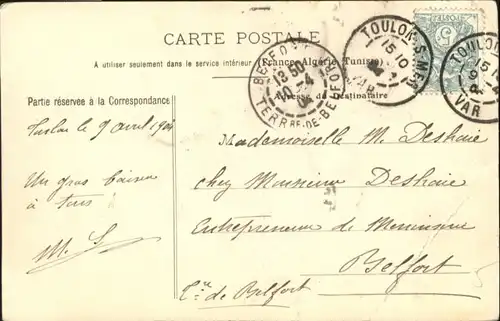 CARTE POSTALE
A utiliser seulement dans le service intérieur (France, Algérie, Tunisie)
Partie réservée à la Correspondance
Adresse du Destinataire
BELFORT
13 50
10 - 4
TERRRE-DE-BELFORT
TOULON-S-MER
15 10
VAR
TOULON
15
9
VAR
Toulon le 9 avril 1904
Un gros baiser
à tous
M. S
Mademoiselle M. Deshaie
chez Monsieur Deshaie
Entrepreneur de Menuiserie
Belfort
de Belfort